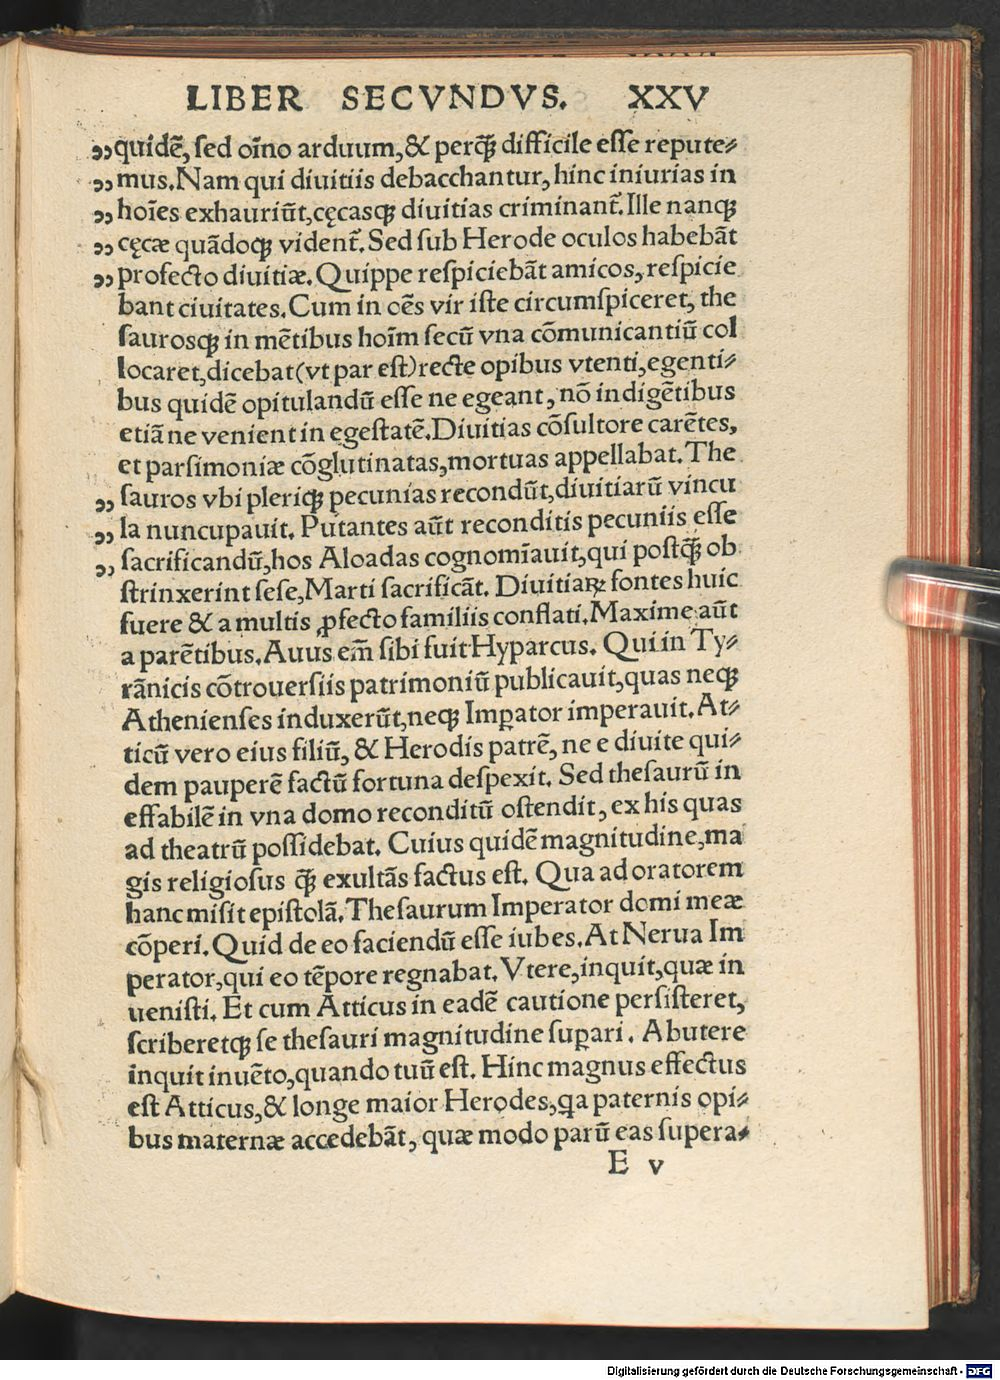 LIBER SECVNDVS. XXV
„quidē, sed oīno arduum, & perq̃ȝ difficile esse repute⸗
„mus. Nam qui diuitiis debacchantur, hinc iniurias in
„hoīes exhauriūt, cęcasqȝ diuitias criminant̃. Ille nanqȝ
„cęcæ quādoqȝ vident̃. Sed sub Herode oculos habebāt
„profecto diuitiæ. Quippe respiciebāt amicos, respicie
bant ciuitates. Cum in oēs vir iste circumspiceret, the
saurosqȝ in mētibus hoīm secū vna cōmunicantiū col
locaret, dicebat (vt par est) recte opibus vtenti, egenti⸗
bus quidē opitulandū esse ne egeant, nō indigētibus
etiā ne venient in egestatē. Diuitias cōsultore carētes,
et parsimoniæ cōglutinatas, mortuas appellabat. The
„sauros vbi pleriqȝ pecunias recondūt, diuitiarū vincu
„la nuncupauit. Putantes aūt reconditis pecuniis esse
„sacrificandū, hos Aloadas cognomīauit, qui postq̃ȝ ob
strinxerint sese, Marti sacrificāt. Diuitiaꝝ fontes huic
fuere & a multis ꝓfecto familiis conflati. Maxime aūt
a parētibus. Auus em̄ sibi fuit Hyparcus. Qui in Ty⸗
rānicis cōtrouersiis patrimoniū publicauit, quas neqȝ
Athenienses induxerūt, neqȝ Imꝑator imperauit. At⸗
ticū vero eius filiū, & Herodis patrē, ne e diuite qui⸗
dem pauperē factū fortuna despexit. Sed thesaurū in
effabilē in vna domo reconditū ostendit, ex his quas
ad theatrū possidebat. Cuius quidē magnitudine, ma
gis religiosus q̃ȝ exultās factus est. Qua ad oratorem
hanc misit epistolā. Thesaurum Imperator domi meæ
cōperi. Quid de eo faciendū esse iubes. At Nerua Im
perator, qui eo tēpore regnabat. Vtere, inquit, quæ in
uenisti. Et cum Atticus in eadē cautione persisteret,
scriberetqȝ se thesauri magnitudine suꝑari. Abutere
inquit inuēto, quando tuū est. Hinc magnus effectus
est Atticus, & longe maior Herodes, qa paternis opi⸗
bus maternæ accedebāt, quæ modo parū eas supera⸗
E v
Digitalisierung gefördert durch die Deutsche Forschungsgemeinschaft - DFG